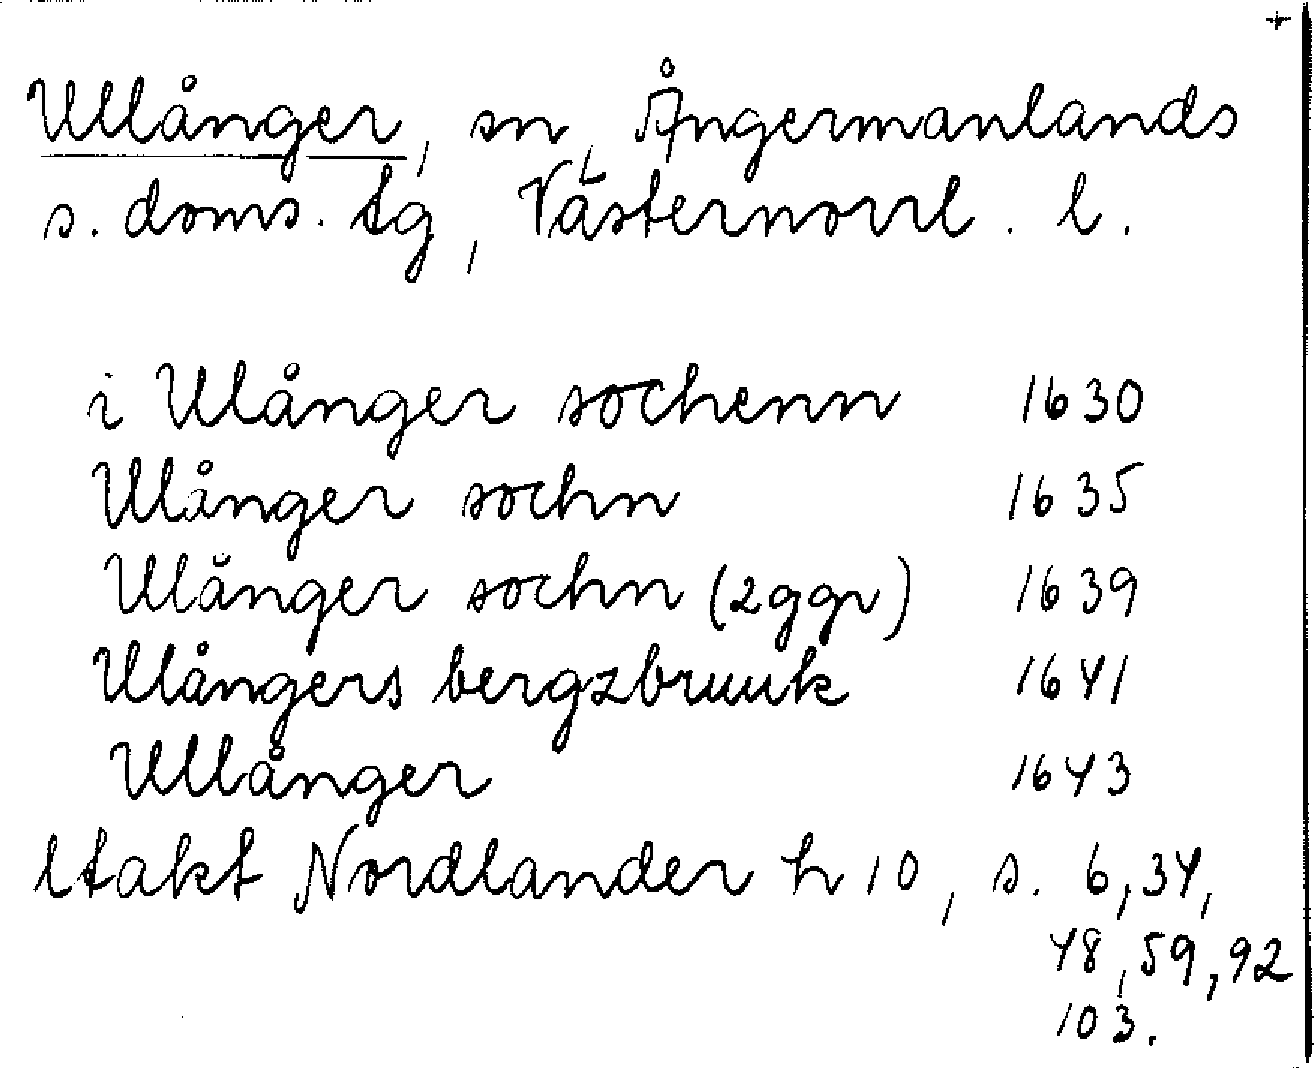 +
Ullånger, sn, Ångermanlands
s. doms. tg, Västernorrl. l.
i Ulånger sochenn 1630
Ulånger sochn 1635
Ulånger sochn (2ggr) 1639
Ulångers bergzbruuk 1641
Ullånger 1643
Utakt Nordlander h 10, s. 6, 34,
48, 59, 92
103.